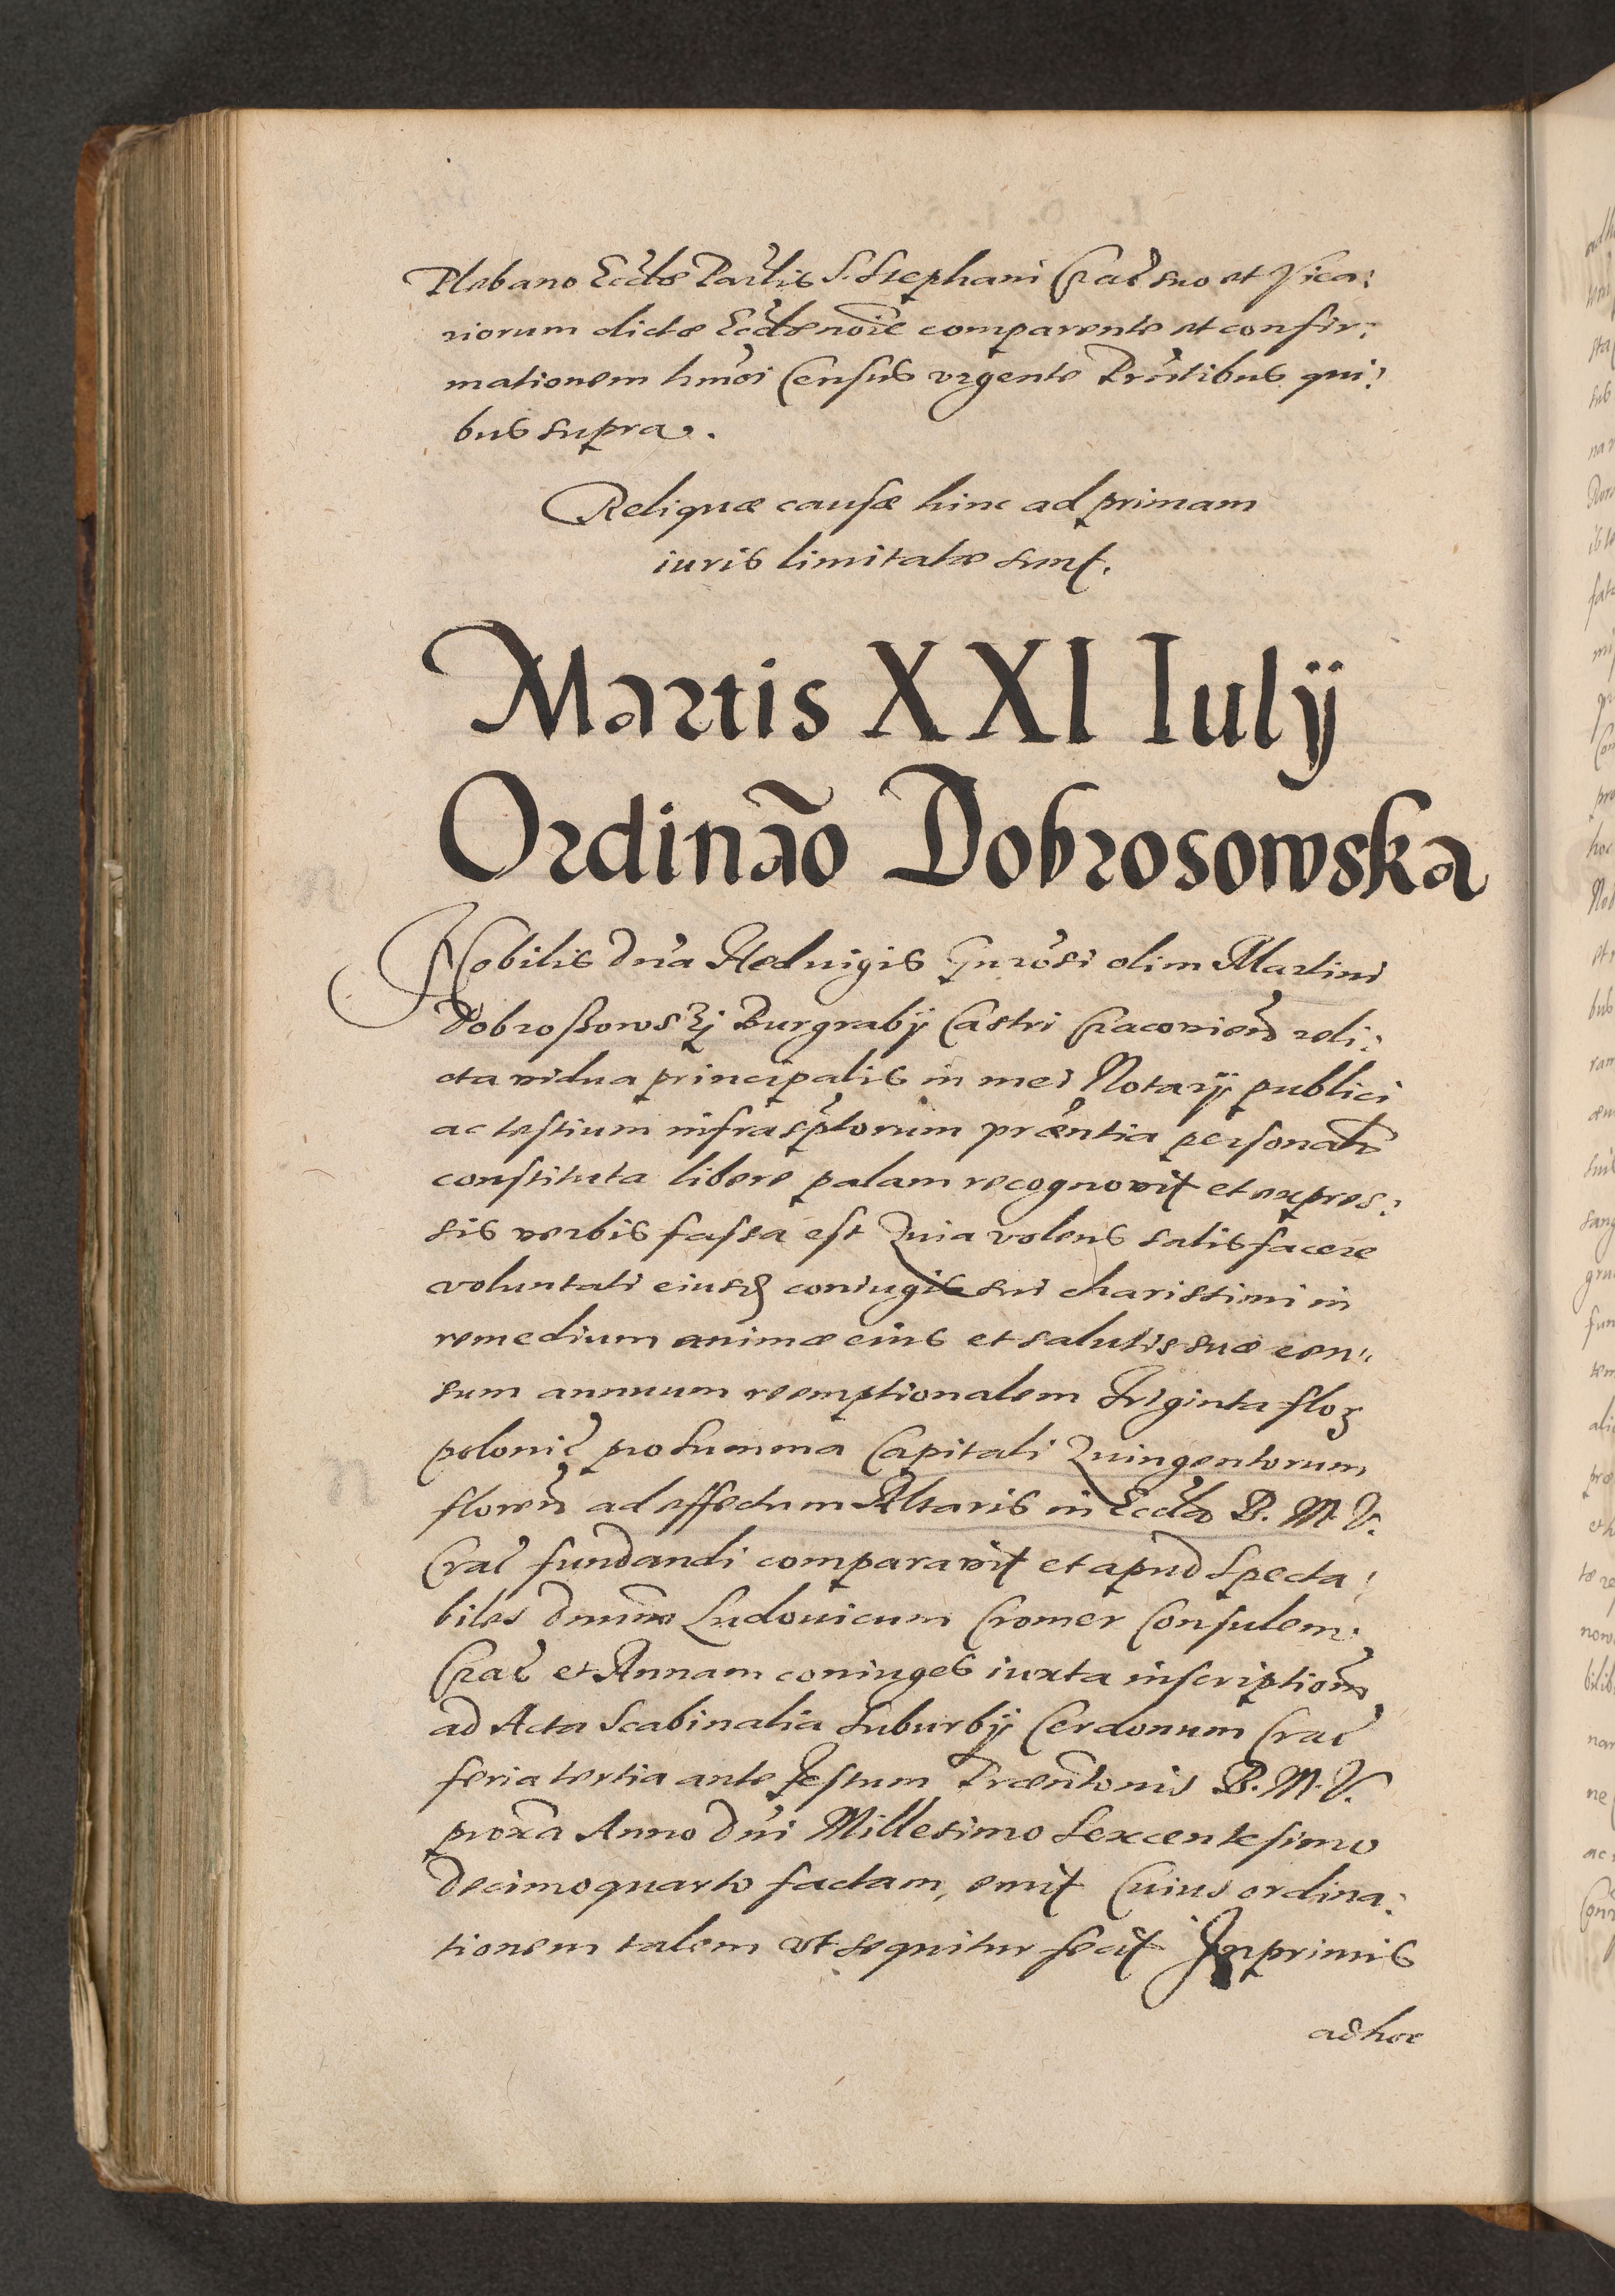 Plebano Eccłæ Parłis S. Stephani Crac̃ suo et Vica:
riorum dictæ Eccłæ noĩe comparente et confir:
mationem hm̃oi Census vrgente Pñtibus qui:
bus supra.
Reliquæ causæ hinc ad primam
iuris limitatæ sunt.
Martis XXI Iulij
Ordinão Dobrosowska
Nobilis Dña Heduigis Gñrosi olim Martini
Dobroßowskj Burgrabij Castri Cracovieñ reli:
cta vidua principalis in mei Notarij publici
ac testium infrascr̃ptorum præñtia personałr
constituta libere palam recognovit et expres:
sis verbis fassa est Quia volens satisfacere
voluntati eiusd̃ coniugis sui charissimi in
remedium animæ eius et salutis suæ cen:
sum annuum reemptionalem Triginta flor̃
polonic̃ pro summa Capitali Quingentorum
floreñ ad effectum Altaris in Eccła B. M. V.
Crac̃ fundandi comparavit et apud Specta:
biles Dnum̃ Ludouicum Cromer Consulem
Crac̃ et Annam coniuges iuxta inscriptioem̃
ad Acta Scabinalia Suburbij Cerdonum Crac̃
feria tertia ante festum Præsentõnis B. M. V.
proxã Anno Dñi Millesimo Sexcentesimo
Decimoquarto factam, emit Cuius ordina:
tionem talem vt sequitur fecit Inprimis
ad hoc